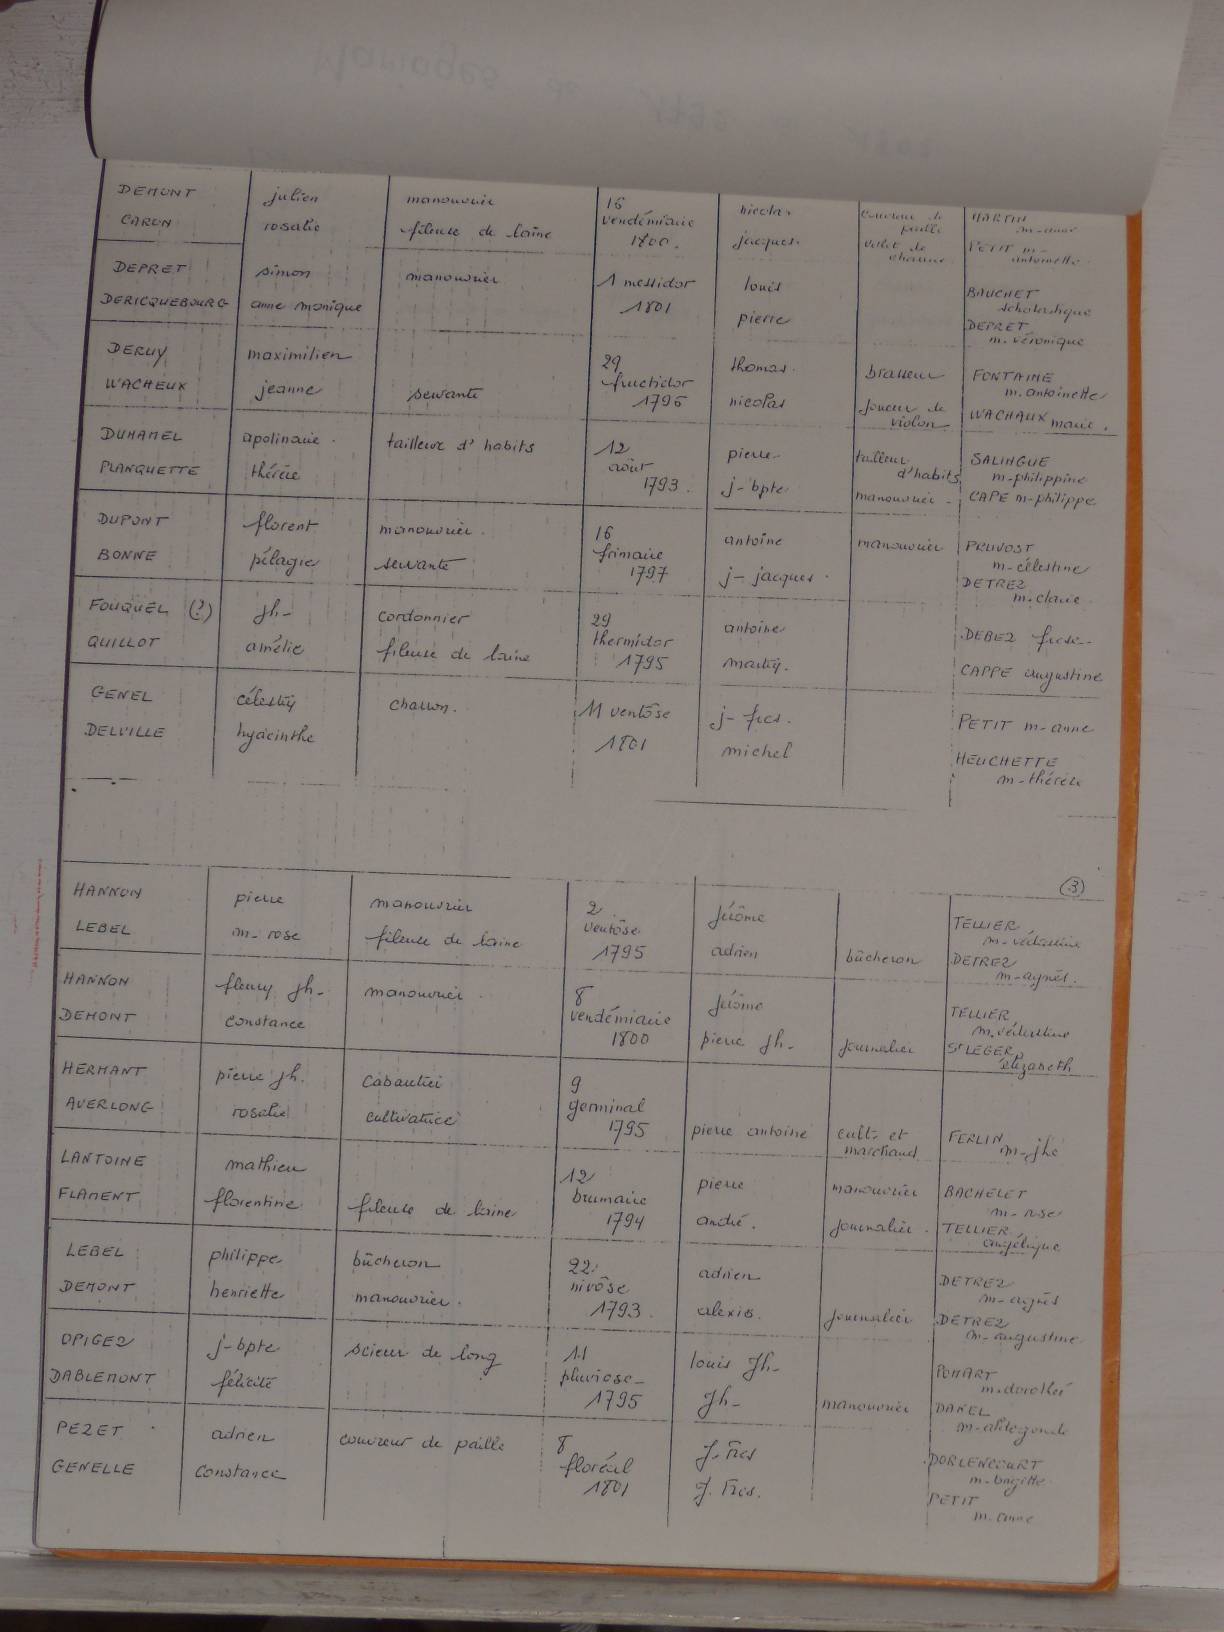 DEMONT julien manouvrier 16 nicolas couvreur de paille MARTIN m-anne
CARON rosalie fileuse de laine vendémiaire 1800. jacques. valet de charrue PETIT m-antoinette
DEPRET simon manouvrier 1 messidor louis BAUCHET scholastique
DERICQUEBOURG anne monique 1801 pierre DEPRET m. véronique
DERUY maximilien 29 thomas. brasseur FONTAINE m. antoinette
WACHEUX jeanne servante fructidor 1796 nicolas joueur de violon WACHAUX marie.
DUHAMEL apolinaire. tailleur d'habits 12 pierre tailleur d'habits SALINGUE m-philippine
PLANQUETTE thérèse août 1793. j-bpte manouvrier - CAPE m-philippe
DUPONT florent manouvrier. 16 antoine manouvrier PRUVOST m-célestine
BONNE pélagie servante frimaire 1797 j-jacques. DETREZ m. claire
FOUQUEL (?) jh- cordonnier 29 antoine DEBEZ
QUILLOT amélie fileuse de laine thermidor 1795 martin. CAPPE augustine
GENEL célestin charron. 11 ventôse j-fcs. PETIT m-anne
DELVILLE hyacinthe 1801 michel HEUCHETTE m-thérèse
(3)
HANNON pierre manouvrier 2 jérôme TELLIER m-védastine
LEBEL m-rose fileuse de laine ventôse 1795 adrien bûcheron DETREZ m-agnès.
HANNON fleury jh- manouvrier. 8 jérôme TELLIER m. védastine
DEMONT constance vendémiaire 1800 pierre jh- journalier St LEGER élizabeth
HERMANT pierre jh. cabaretier 9
AVERLONG rosalie cultivatrice germinal 1795 pierre antoine cult. et marchand FERLIN m-jhe
LANTOINE mathieu 12 pierre manouvrier BACHELET m-rose
FLAMENT florentine fileuse de laine brumaire 1794 andré. journalier. TELLIER angélique
LEBEL philippe bûcheron 22 adrien DETREZ m-agnès
DEMONT henriette manouvrier. nivôse 1793. alexis. journalier DETREZ m-augustine
OPIGEZ j-bpte scieur de long 11 louis jh- POMART m. dorothée
DABLEMONT félicité pluviose- 1795 jh- manouvrier DANEL m-aldegonde
PEZET adrien couvreur de paille 8 J. Fcs DORLENCOURT m. brigitte
GENELLE constance floréal 1801 J. Fcs. PETIT m. anne